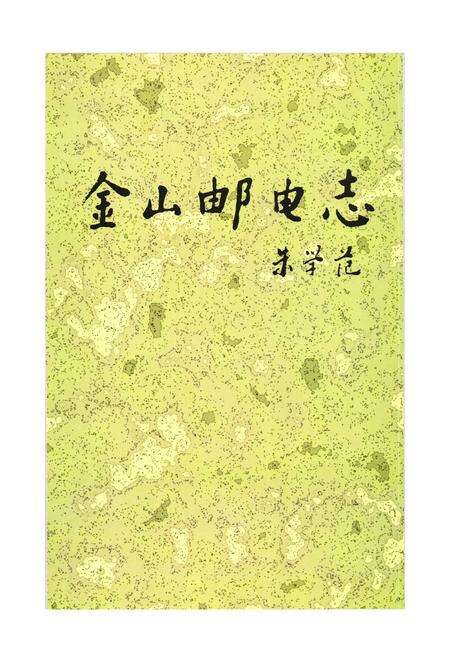 金山邮电志
朱学范